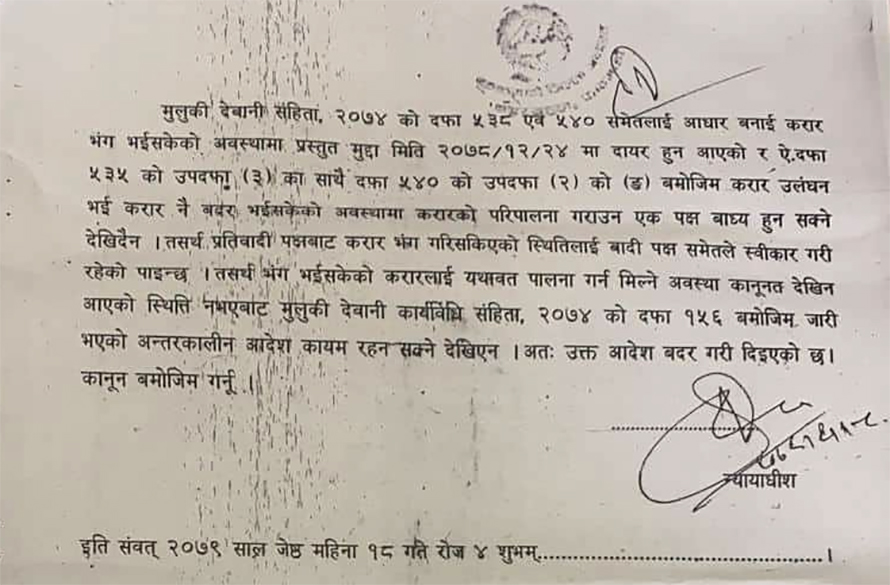 मुलुकी देवानी संहिता, २०७४ को दफा ५३८ एवं ५४० समेतलाई आधार बनाई करार
भंग भईसकेको अवस्थामा प्रस्तुत मुद्दा मिति २०७८/१२/२४ मा दायर हुन आएको र ऐ.दफा
५३५ को उपदफा (३) का साथै दफा ५४० को उपदफा (२) को (ङ) बमोजिम करार उलंघन
भई करार नै बदर भईसकेको अवस्थामा करारको परिपालना गराउन एक पक्ष बाध्य हुन सक्ने
देखिदैन । तसर्थ प्रतिवादी पक्षबाट करार भंग गरिसकिएको स्थितिलाई बादी पक्ष समेतले स्वीकार गरी
रहेको पाइन्छ । तसर्थ भंग भईसकेको करारलाई यथावत पालना गर्न मिल्ने अवस्था कानूनत देखिन
आएको स्थिति नभएबाट मुलुकी देवानी कार्यविधि संहिता, २०७४ को दफा १५६ बमोजिम जारी
भएको अन्तरकालीन आदेश कायम रहन सक्ने देखिएन । अतः उक्त आदेश बदर गरी दिइएको छ।
कानून बमोजिम गर्नू ।
न्यायाधीश
इति संवत् २०७९ साल जेष्ठ महिना १८ गति रोज ४ शुभम्..............................।